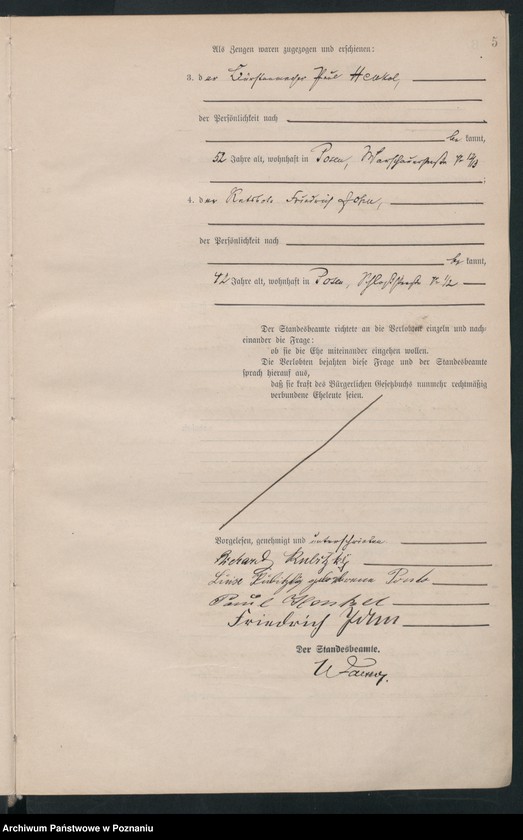 5
Als Zeugen waren zugezogen und erschienen:
3. der Bürstenmacher Paul Henkel,
der Persönlichkeit nach
be kannt,
52 Jahre alt, wohnhaft in Posen, Warschauerstraße No
4. der Friedrich John,
der Persönlichkeit nach
be kannt,
42 Jahre alt, wohnhaft in Posen, Schloßstraße No 1/2
Der Standesbeamte richtete an die Verlobten einzeln und nach-
einander die Frage:
ob sie die Ehe miteinander eingehen wollen.
Die Verlobten bejahten diese Frage und der Standesbeamte
sprach hierauf aus,
daß sie kraft des Bürgerlichen Gesetzbuchs nunmehr rechtmäßig
verbundene Eheleute seien.
Vorgelesen, genehmigt und unterschrieben
Richard Kubitzky
Luise Kubitzky geborene
Paul Henkel
Friedrich John
Der Standesbeamte.
Archiwum Państwowe w Poznaniu